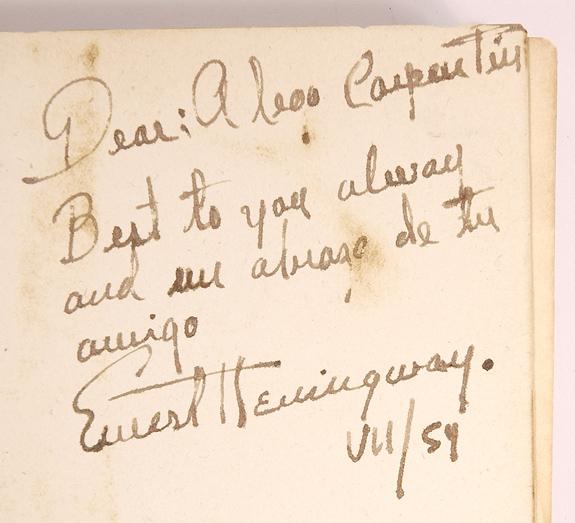 Dear: Alejo Carpentier
Best to you alway
and un abraso de tu
amigo
Ernest Hemingway.
VII/59